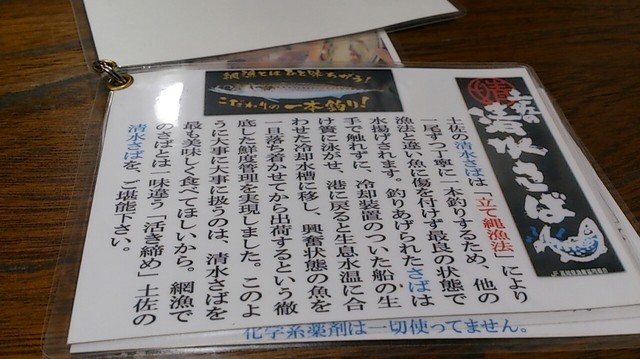 土佐の
清水さば
土佐の清水さばは「立て縄漁法」により
一尾ずつ丁寧に一本釣りするため、他の
漁法と違い魚に傷を付けず最良の状態で
水揚げされます。釣りあげられたさばは
手で触れずに、冷却装置のついた船の生
け簀に泳がせ、港に戻ると生息水温に合
わせた冷却水槽に移し、興奮状態の魚を
一旦落ち着かせてから出荷するという徹
底した鮮度管理を実現しました。このよ
うに大事に大事に扱うのは、清水さばを
最も美味しく食べてほしいから。網漁で
のさばとは一味違う「活き締め」土佐の
清水さばを、ご堪能下さい。
網漁とはひと味ちがう!
こだわりの一本釣り!
化学系薬剤は一切使ってません。